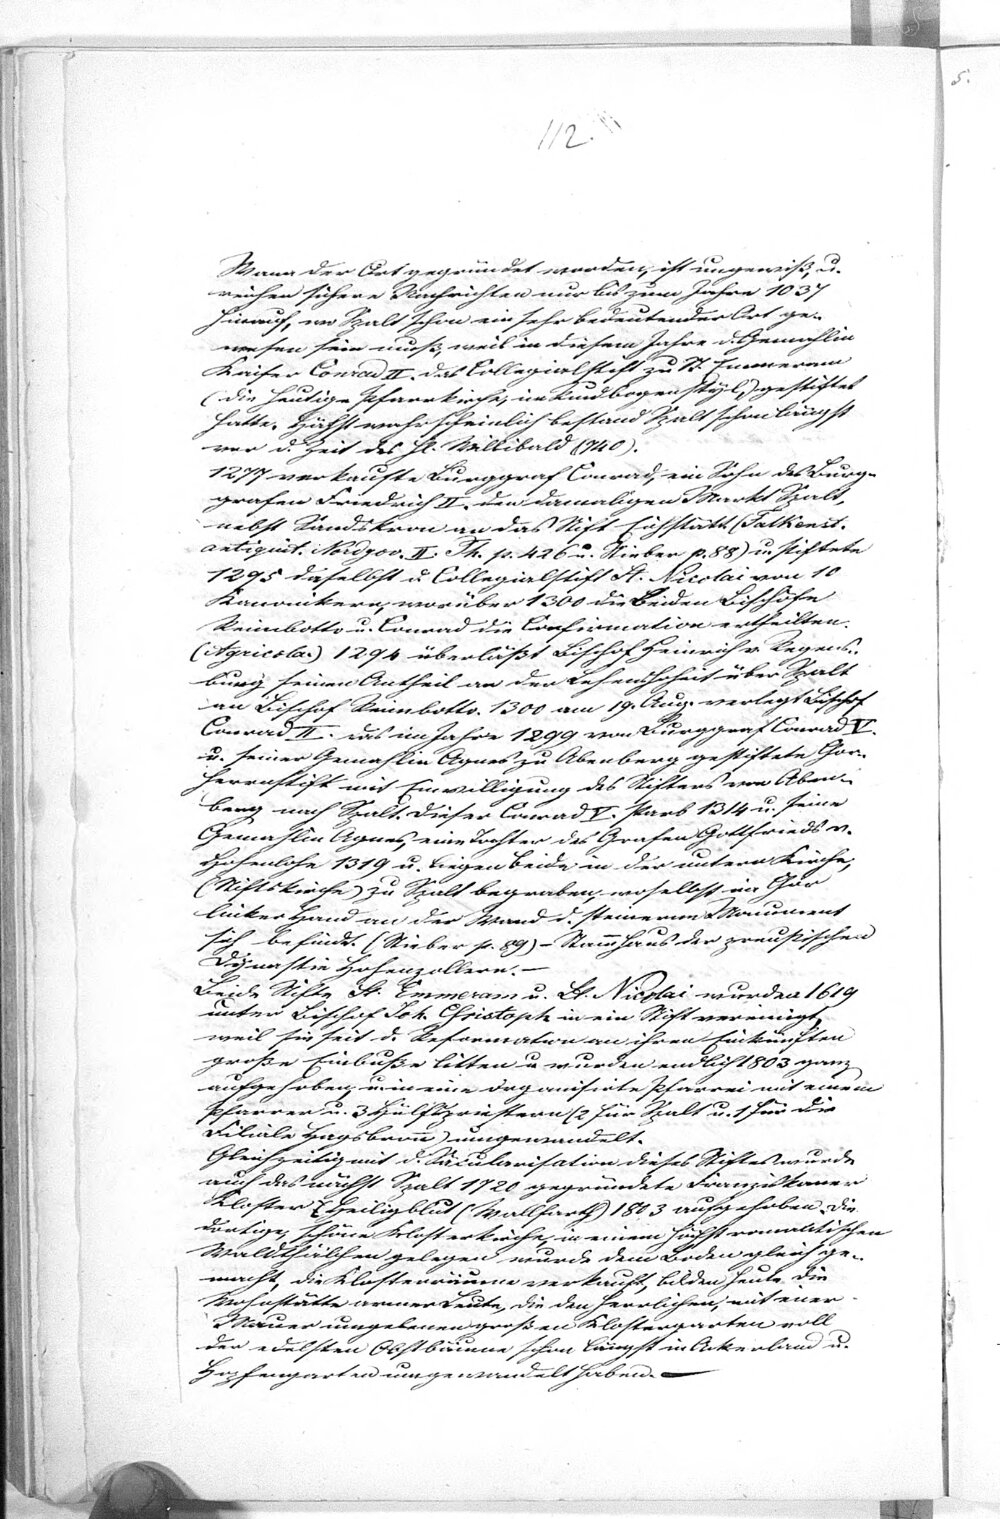 5.
112.
Wann der Ort gegründet worden, ist ungewiß, u.
reichen sichere Nachrichten nur bis zum Jahre 1037
hinauf, wo Spalt schon ein sehr bedeutender Ort ge-
wesen sein muß, weil in diesem Jahre d. Gemahlin
Kaiser Conrad II. das Collegialstift zu St. Emmeram
(die heutige Pfarrkirche, im Rundbogenstyl,) gestiftet
hatte. Höchst wahrscheinlich bestand Spalt schon längst
vor d. Zeit des hl. Willibald (740).
1277 verkaufte Burggraf Conrad, ein Sohn des Burg-
grafen Friedrich II. den damaligen Markt Spalt,
nebst Sandskron an das Stift Eichstätt (Falkenst.
antiquit. Nordgov. II. Th. p. 426 u. Stieber p. 88) u. stiftete
1295 daselbst d. Collegialstift St. Nicolai von 10
Kanonikern, worüber 1300 die beiden Bischöfe
Reimbotto u. Conrad die Confirmation ertheilten.
(Agricola.) 1294 überläßt Bischof Heinrich v. Regens-
burg seinen Antheil an der Lehenhoheit über Spalt
an Bischof Reimbotto. 1300 am 19. Aug. verlegt Bischof
Conrad II. das im Jahre 1299 von Burggraf Conrad V.
u. seiner Gemahlin Agnes zu Abenberg gestiftete Chor-
herrnstift mit Einwilligung des Stifters von Aben-
berg nach Spalt. Dieser Conrad V. starb 1314 u. seine
Gemahlin Agnes, eine Tochter des Grafen Gottfrieds v.
Hohenlohe 1319 u. liegen beide in der untern Kirche,
(Stiftskirche) zu Spalt begraben, woselbst im Chor
linker Hand an der Wand d. steinerne Monument
sich befindet. (Stieber p. 89) – Stammhaus der preußischen
Dynastie Hohenzollern. –
Beide Stifte St. Emmeram u. St. Nicolai wurden 1619
unter Bischof Joh. Christoph in ein Stift vereinigt,
weil sie seit d. Reformation an ihren Einkünften
große Einbuße litten u. wurden endlich 1803 ganz
aufgehoben, u. in eine organisirte Pfarrei mit einem
Pfarrer u. 3 Hülfspriestern (2 für Spalt u. 1 für die
Filiale Hagsbronn) umgewandelt.
Gleichzeitig mit d. Säcularisation dieses Stiftes wurde
auch das nächst Spalt 1720 gegründete Franziskaner
Kloster Heiligblut (Wallfarth) 1803 aufgehoben. Die
dortige, schöne Klosterkirche, in einem höchst romantischen
Waldthälchen gelegen wurde dem Boden gleich ge-
macht, die Klosterräume verkauft, bilden heute die
Wohnstätte armer Leute, die den herrlichen, mit einer
Mauer umgebenen großen Klostergarten voll
der edelsten Obstbäume schon längst in Ackerland u.
Hopfengarten umgewandelt haben. –